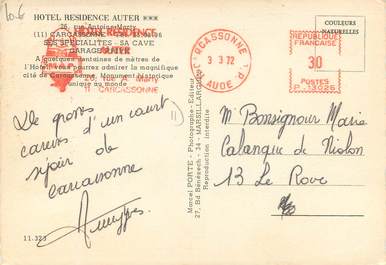 HOTEL RESIDENCE AUTER ***
26, rue Antoine Marty
(11) CARCASSONNE
SES SPÉCIALITÉS - SA CAVE
GARAGE
A quelques centaines de mètres de
l'Hôtel vous pourrez admirer la magnifique
cité de Carcassonne. Monument historique
unique au monde
HOTEL RESIDENCE
AUTER
26, rue A. Marty
11 CARCASSONNE
CARCASSONNE P.
3 3 72
AUDE
REPUBLIQUE
FRANCAISE
30
POSTES
P. 13025
COULEURS
NATURELLES
De gros
d'un court
séjour de
carcassonne
11
11.323
Marcel PORTE - Photographe-Editeur
27, Bd Bénézech - 34 - MARSILLARGUES
Reproduction interdite
M Bonsignour Marie
Calanque de Niolon
13 Le Rove